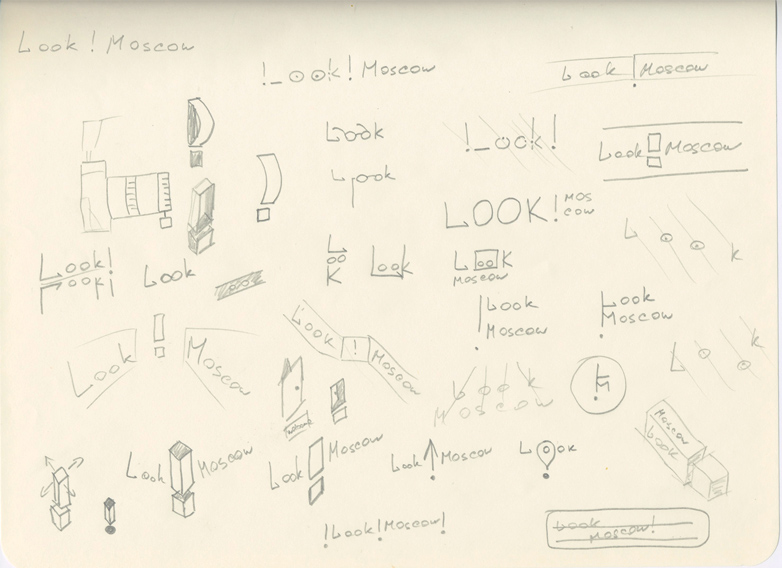 Look ! Moscow
!Look! Moscow
Look Moscow
Look
!Look!
Look ! Moscow
Look
LOOK! MOS
COW
Look!
Look
Look
Look
LOOK
Moscow
L o o k
Look
Moscow
Look
Moscow
Look ! Moscow
Look ! Moscow
L o o k
Moscow
L o o k
Moscow
Look
Look ! Moscow
Look ! Moscow
Look Moscow
Look
!Look!Moscow!
Look
Moscow!